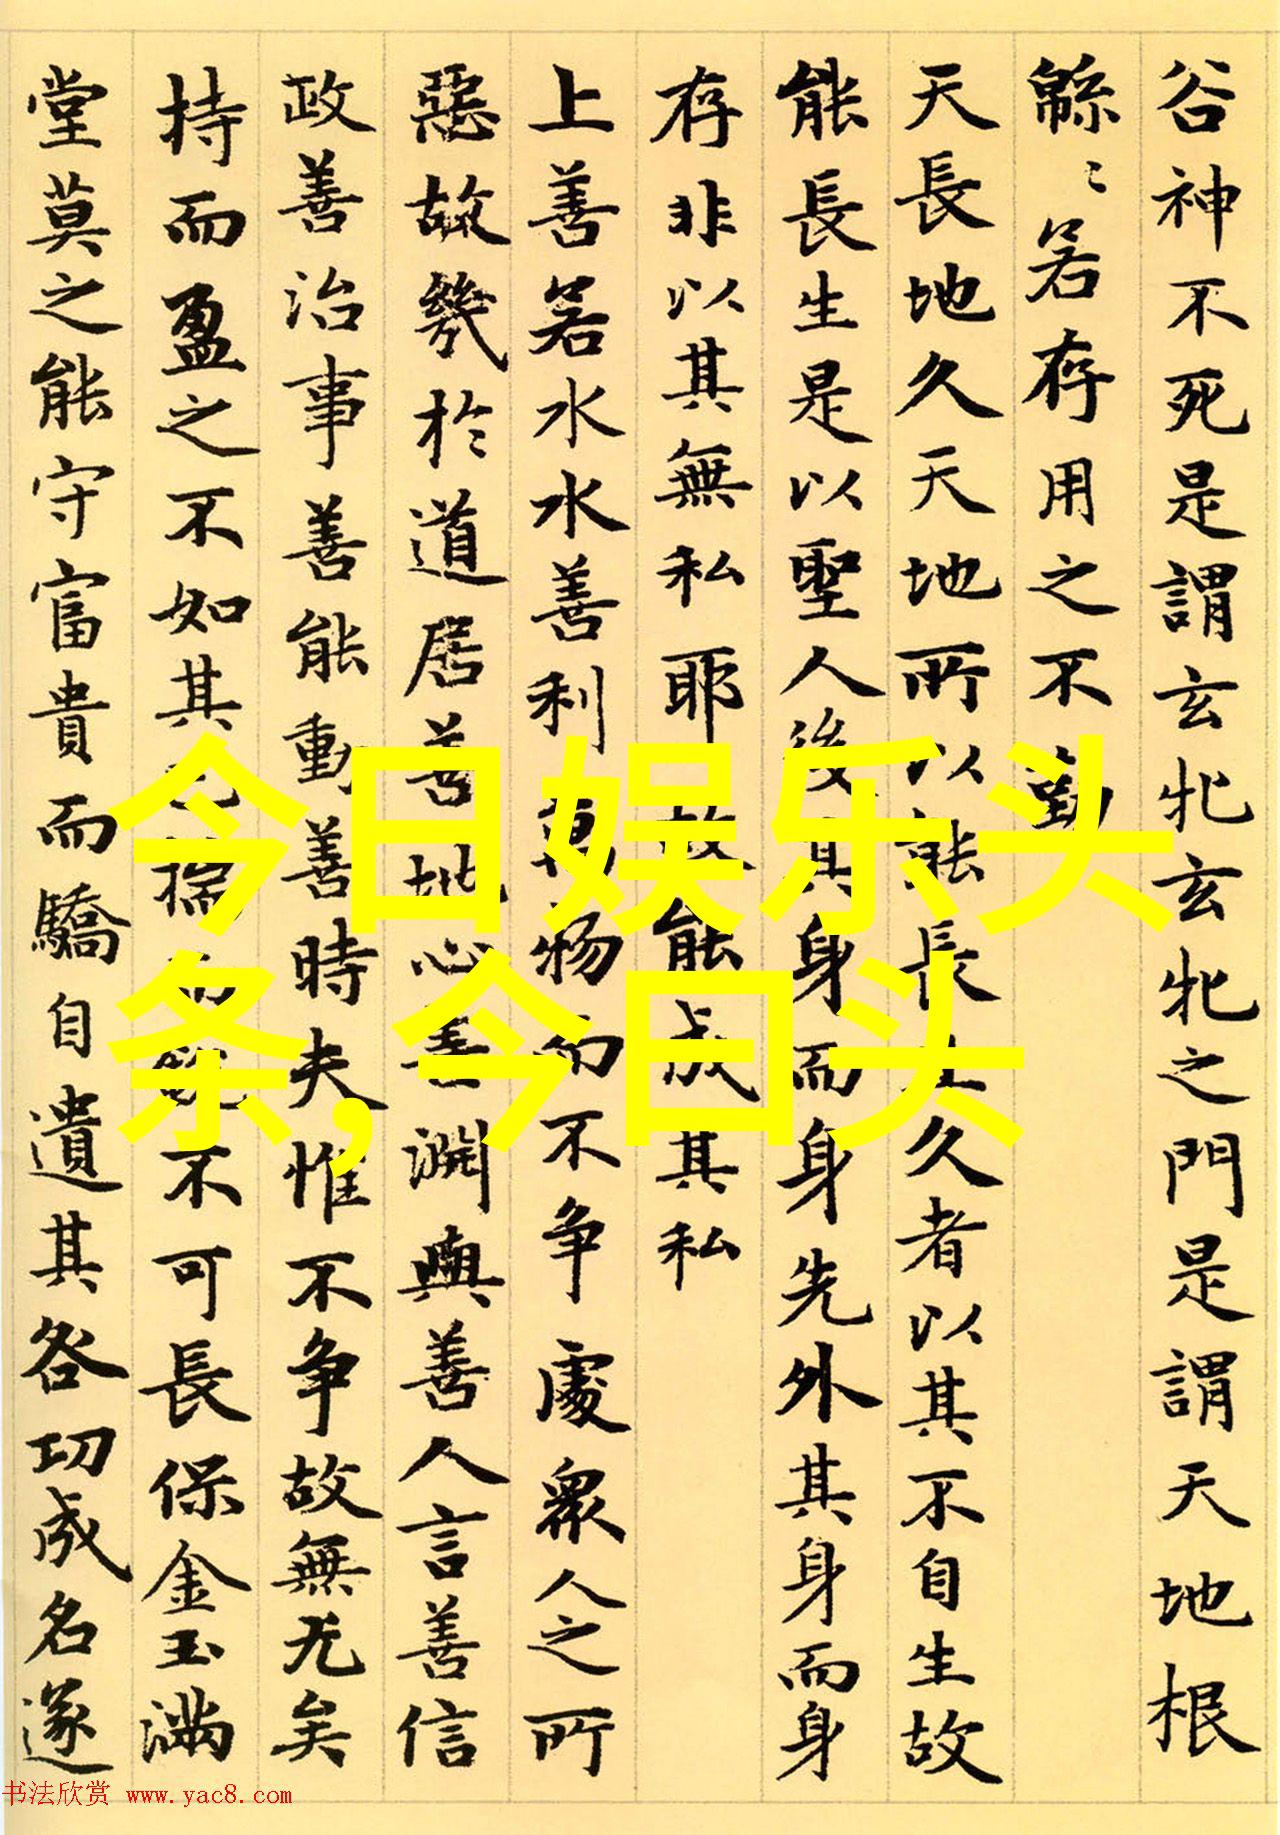 谷神不死是謂玄牝玄牝之門是謂天地根
緜〻若存用之不勤
天長地久天地所以能長且久者以其不自生故
能長生是以聖人後其身而身先外其身而身
存非以其無私耶故能成其私
上善若水水善利萬物而不争處衆人之所
惡故幾於道居善地心善淵與善人言善信
政善治事善能動善時夫惟不争故無尤矣
持而盈之不如其已揣而銳不可長保金玉滿
堂莫之能守富貴而驕自遺其咎功成名遂
今日娱乐头
条,今曰头
书法欣赏 www.yac8.com